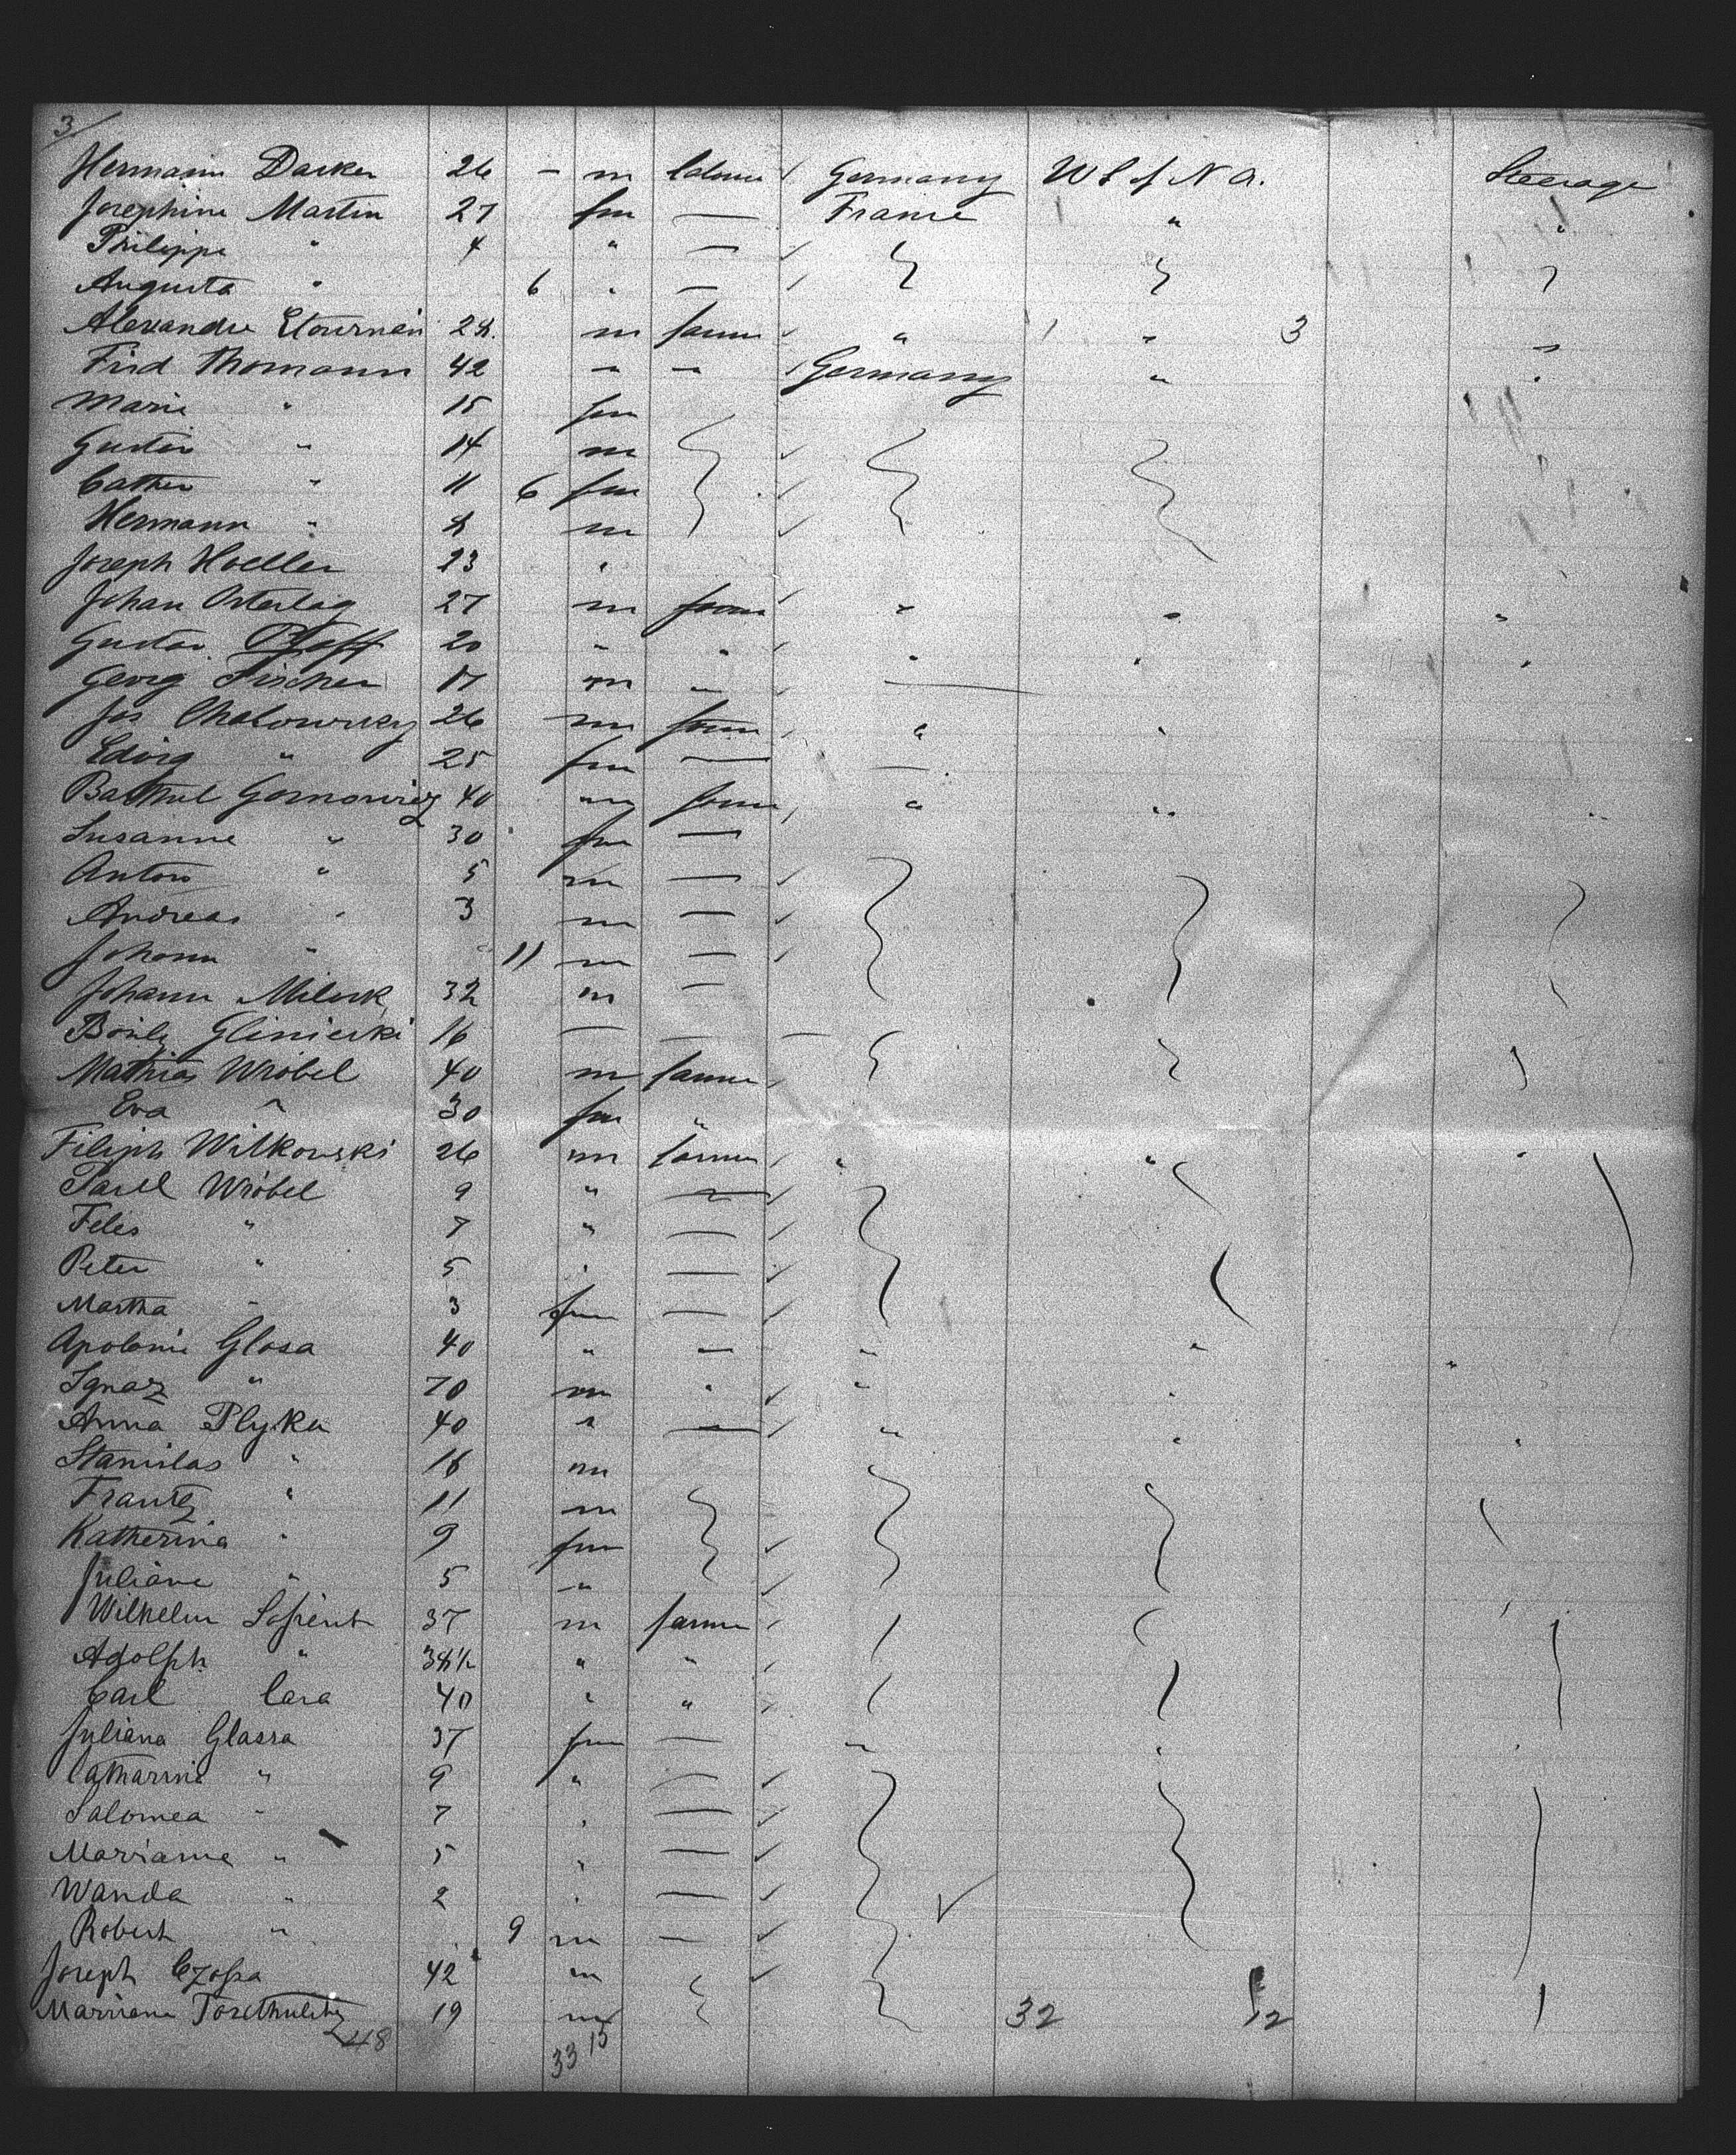 3/
Hermann Darker 26 - m Germany U S of N A. Steerage
Josephine Martin 27 fm — France " "
Philippe " 4 " —
Augusta " 6 " —
Alexandre 28 m farmer " " 3 "
Fird Thomann 42 " " Germany " "
Marie " 15 fm
Gustav " 14 m
Cather " 11 6 fm
Hermann " 8 m
Joseph Hoeller 23 "
Johan Osterlag 27 m farmer " " "
Gustav Pfaff 20 " " " " "
Georg Fischer 17 m " —
Jos Chalowsky 26 m farmer " "
Edvig " 25 fm — —
Balthul Gornowicz 40 m farmer " " "
Susanne " 30 fm —
Anton " 5 m —
Andreas " 3 m —
Johann " 11 m —
Johann Mileck 32 m —
Glinierki 16 — — —
Mathias Wrobel 40 m farmer
Eva " 30 fm "
Filiph Wilkowski 26 m farmer " " "
Paul Wrobel 9 " —
Felis " 7 " —
Peter " 5 " —
Martha " 3 fm —
Apolonie Glosa 40 " — " " "
Ignaz " 70 m " " "
Anna Plyka 40 " — " " "
Stanislas " 18 m
Frantz " 11 m
Katherina " 9 fm
Juliane " 5 "
Wilhelm 37 m farmer
Adolph " 38 " "
Carl Cara 40 " "
Juliana Glassa 37 fm — " " "
Catharine " 9 " —
Salomea " 7 " —
Marianna " 5 " —
Wanda " 2 " —
Robert " 9 m —
Joseph Czossa 42 m
Marriane 19 m 32 12
48 33 15